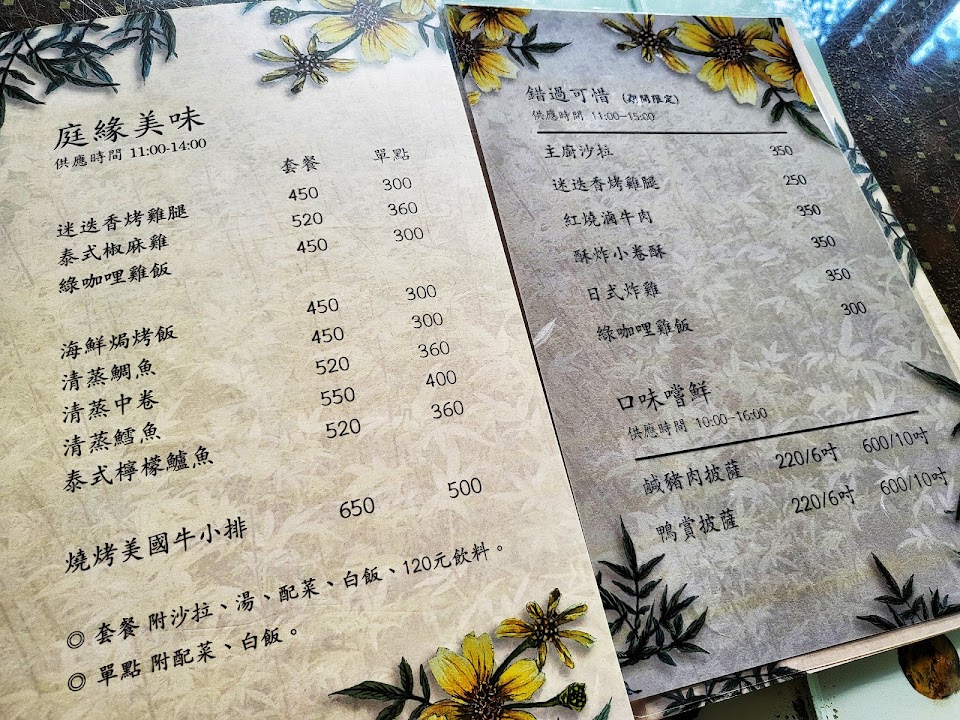 庭緣美味
供應時間 11:00-14:00
套餐 單點
迷迭香烤雞腿 450 300
泰式椒麻雞 520 360
綠咖哩雞飯 450 300
海鮮焗烤飯 450 300
清蒸鯛魚 450 300
清蒸中卷 520 360
清蒸鱈魚 550 400
泰式檸檬鱸魚 520 360
燒烤美國牛小排 650 500
◎ 套餐 附沙拉、湯、配菜、白飯、120元飲料。
◎ 單點 附配菜、白飯。
錯過可惜 (期間限定)
供應時間 11:00-15:00
主廚沙拉 350
迷迭香烤雞腿 250
紅燒滷牛肉 350
酥炸小卷酥 350
日式炸雞 350
綠咖哩雞飯 300
口味嚐鮮
供應時間 10:00-16:00
鹹豬肉披薩 220/6吋 600/10吋
鴨賞披薩 220/6吋 600/10吋